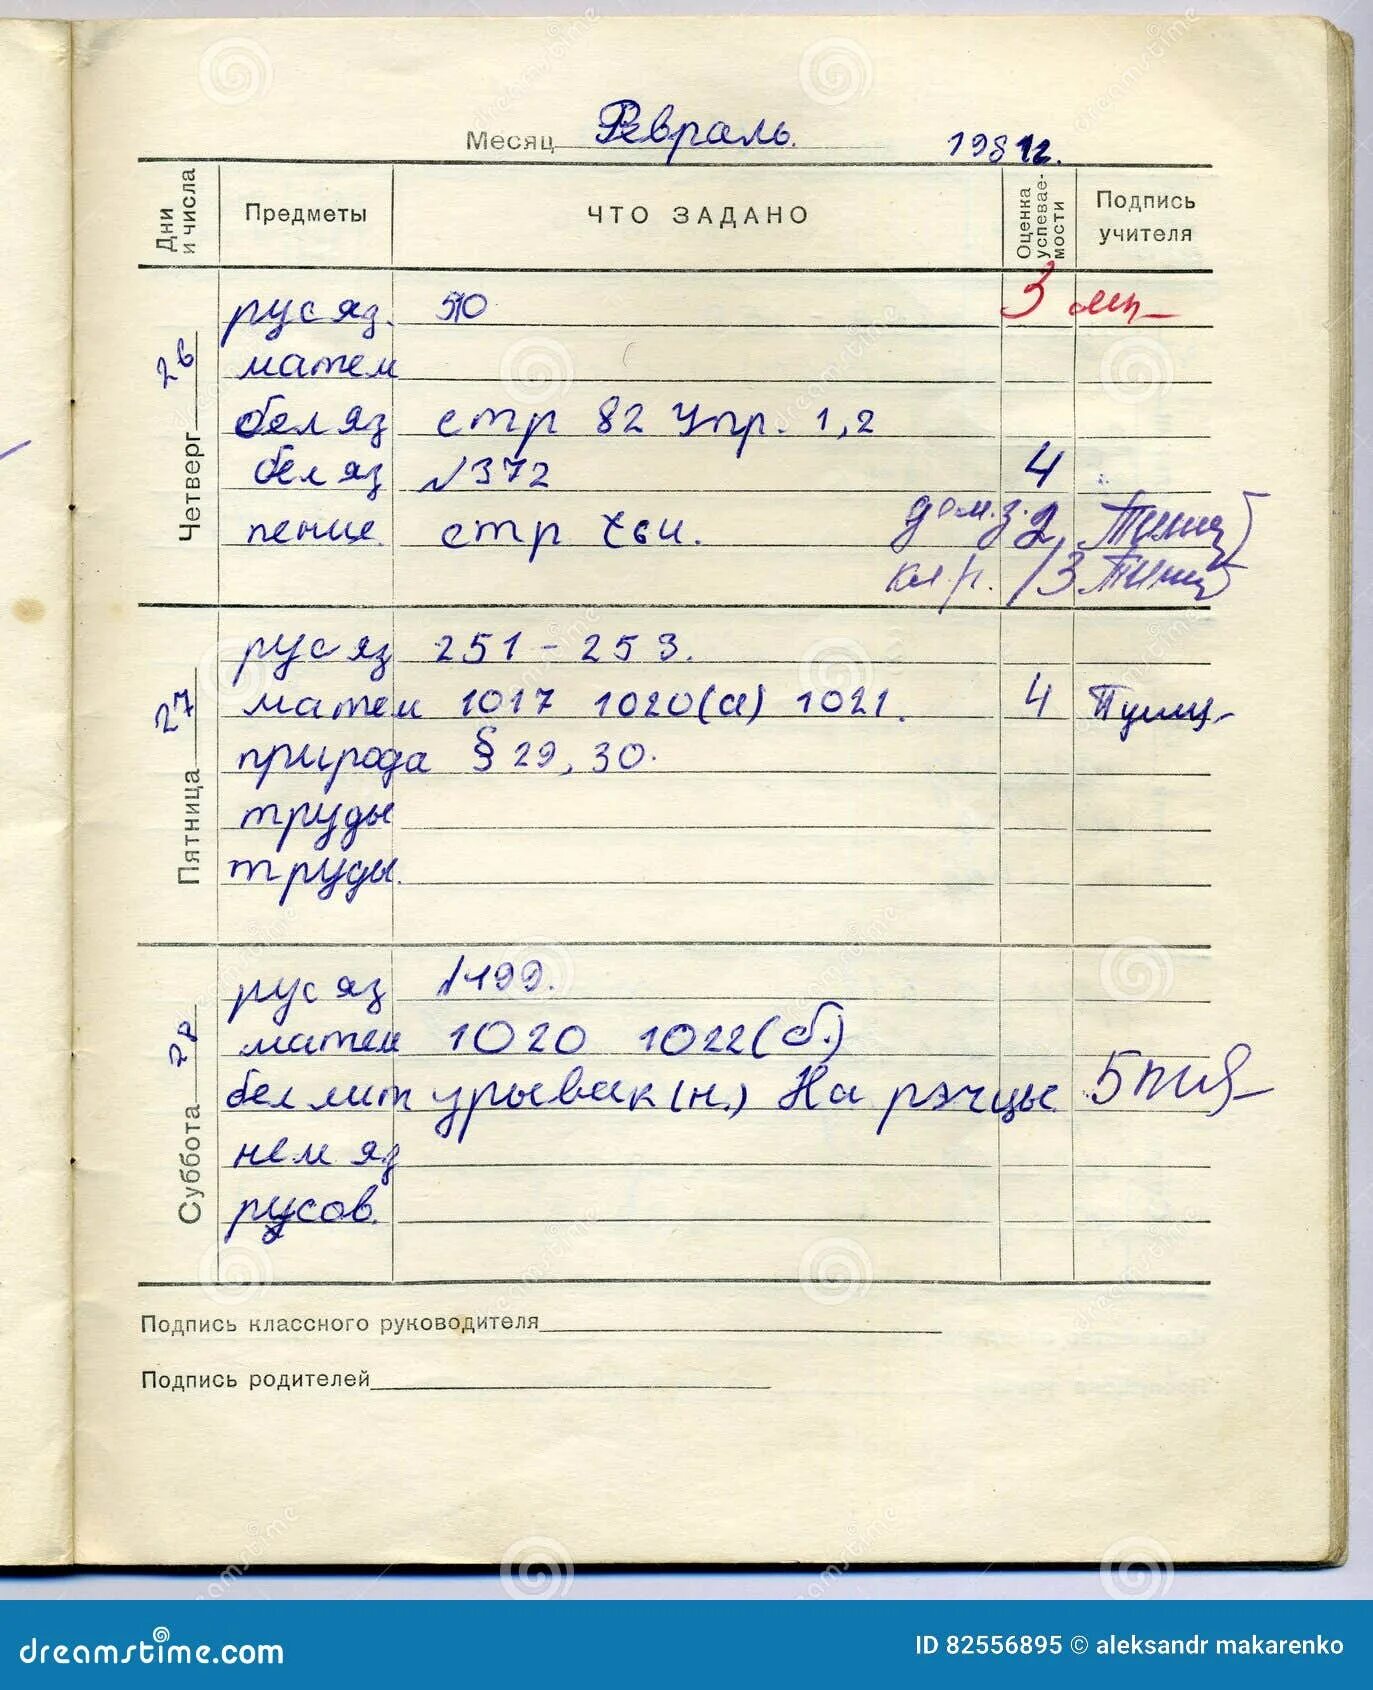 Месяц Февраль. 1981г.
Дни и числа Предметы ЧТО ЗАДАНО Оценка успевае-мости Подпись учителя
Четверг 26
рус яз. 510 3
матем
бел яз стр 82 Упр. 1,2
бел яз №372 4
пение стр дом.з. 2
кл.р. 3
Пятница 27
рус яз 251 - 253.
матем 1017 1020(а) 1021. 4
природа § 29, 30.
труды
труды.
Суббота 28
рус яз №499.
матем 1020 1022(б.)
бел лит урывак(н.) На рэчцы 5
нем яз
рус
Подпись классного руководителя
Подпись родителей
dreamstime.com
ID 82556895 © aleksandr makarenko